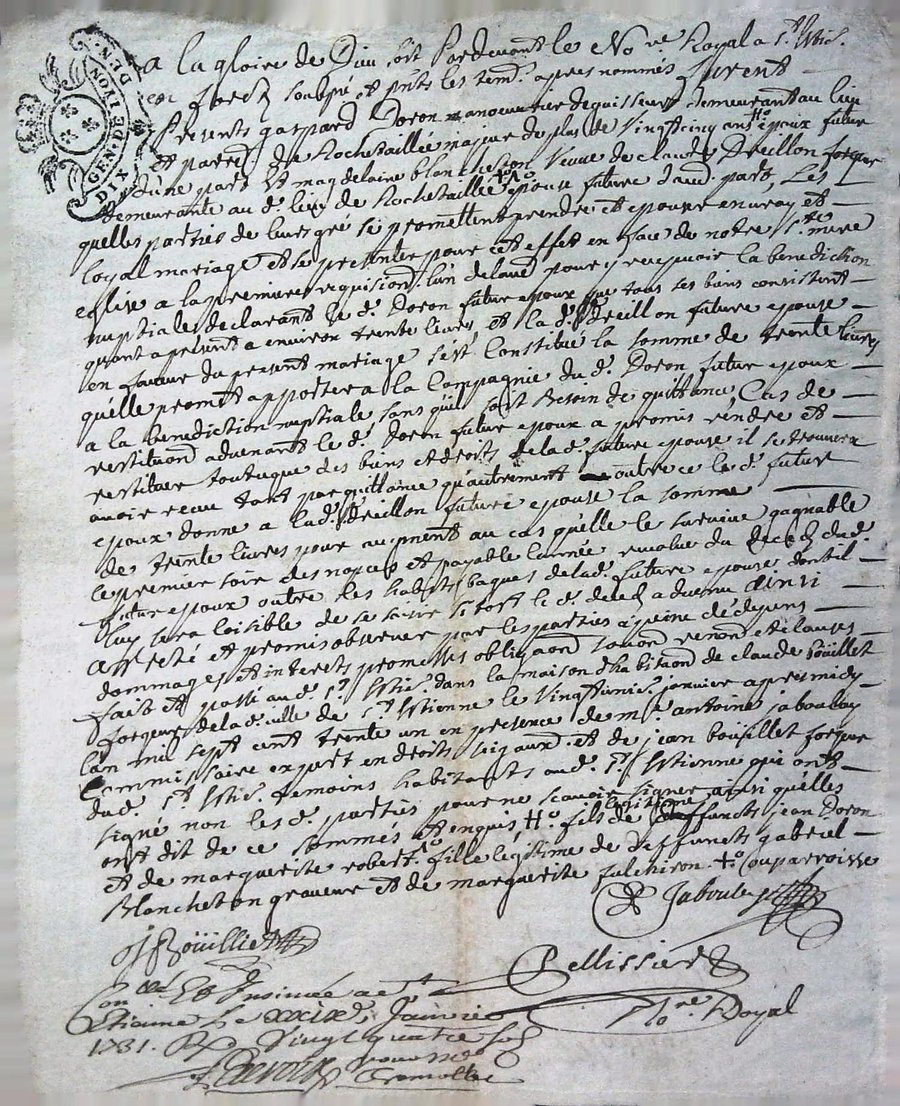 GEN. DE LION
DIX DEN.
A la gloire de Dieu soit Pardevant le No.re Royal a St. Etie.
en forez soubsigné et présents les tem.s apres nommés furent
Presents gaspard Doron manoeuvrier deguisseur demeurant au lieu
et parroisse de Rochetaillée majeur de plus de Vingtcinq ans H.o epoux futur
d'une part Et magdelaine blancheton Veuve de claude Dreillon forgeur
demeurante au d. lieu de Rochetaillée +.o epouse future d'aud. part, Les
quelles parties de leurs gré se promettent prendre et epouser en vray et
loyal mariage et se presenter pour cet effet en face de notre S.te mere
eglise a la premiere requision.d l'un de lautre pour y recepvoir la benediction
nuptiale declarant le d. Doron futur epoux que tous ses biens consistent
quant a présent a environ trente livres et la d. Dreillon future epouse
en faveur du present mariage s'est Constitué la somme de trente livres
qu'elle promet apporter a la Compagnie du d. Doron futur epoux
a la benediction nuptiale sans qu'il soit Besoin de quittance, Cas de
restituon.d advenant le d. Doron futur epoux a promis rendre et
restituer tout ce que des biens et droits de la d. future epouse il se trouvera
avoir receu tant par quittance qu'autrement outre ce le d. futur
epoux donne a lad. Dreillon future epouse la somme
de trente livres pour augment au cas qu'elle le survive gagnable
le premier soir des nopces et payable l'année revolue du deced dud.
futur epoux outre les habits bagues de lad. future epouse dont il
luy sera loisible de se saisir sitost le d. deced advenu Ainsi
Arresté et promis observer par les parties a peine de depens
dommages et interets promesses obligaon.d renon.d et clauses
fait et passé aud. St. Etie. dans la maison d'habitaon.d de claude Boüillet
forgeur de la d. ville de St. Etienne le Vingtsixie. janvier apres midy
l'an mil sept cent trente un en presence de m.e antoine jaboulay
Commissaire expert en droits sigaux et de jean boüillet forgeur
dud. St. Etie. temoins habitants aud. St. Etienne qui ont
signé non les d. parties pour ne scavoir signer ainsi qu'elles
ont dit de ce sommés et enquis, H.o fils légitime de deffuncts jean Doron
et de marguerite robert +.o fille légitime de deffuncts gabriel
Blancheton graveur et de marguerite fulchiron +.o Ou parroisse
Jaboulay
J Boüillet
Pellissier
No.re Royal
Con.rlé Et Insinué a St
Etienne le xxix.e Janvier
1731. R Vingt quatre sols